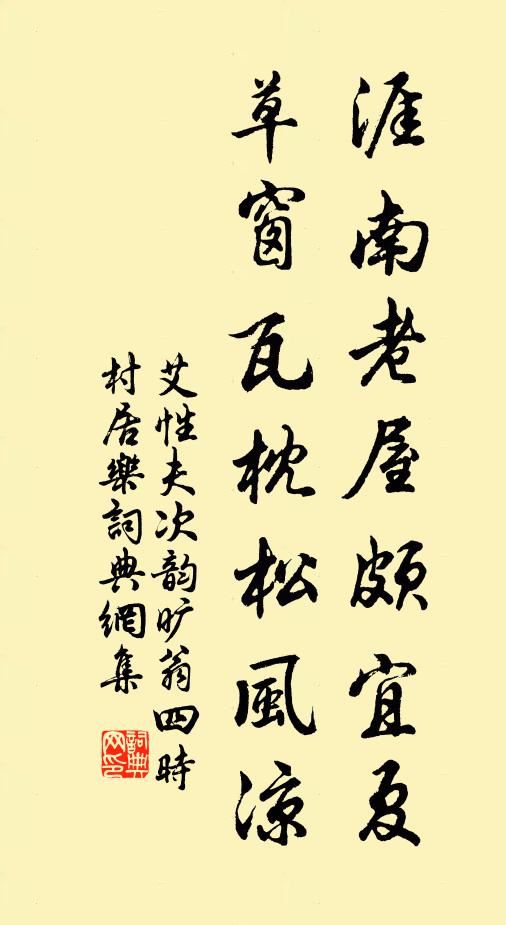 涯南老屋頗宜夏
草窗瓦枕松風涼
艾性夫次韵旷翁四時
村居樂詞典網集
詞典
网印